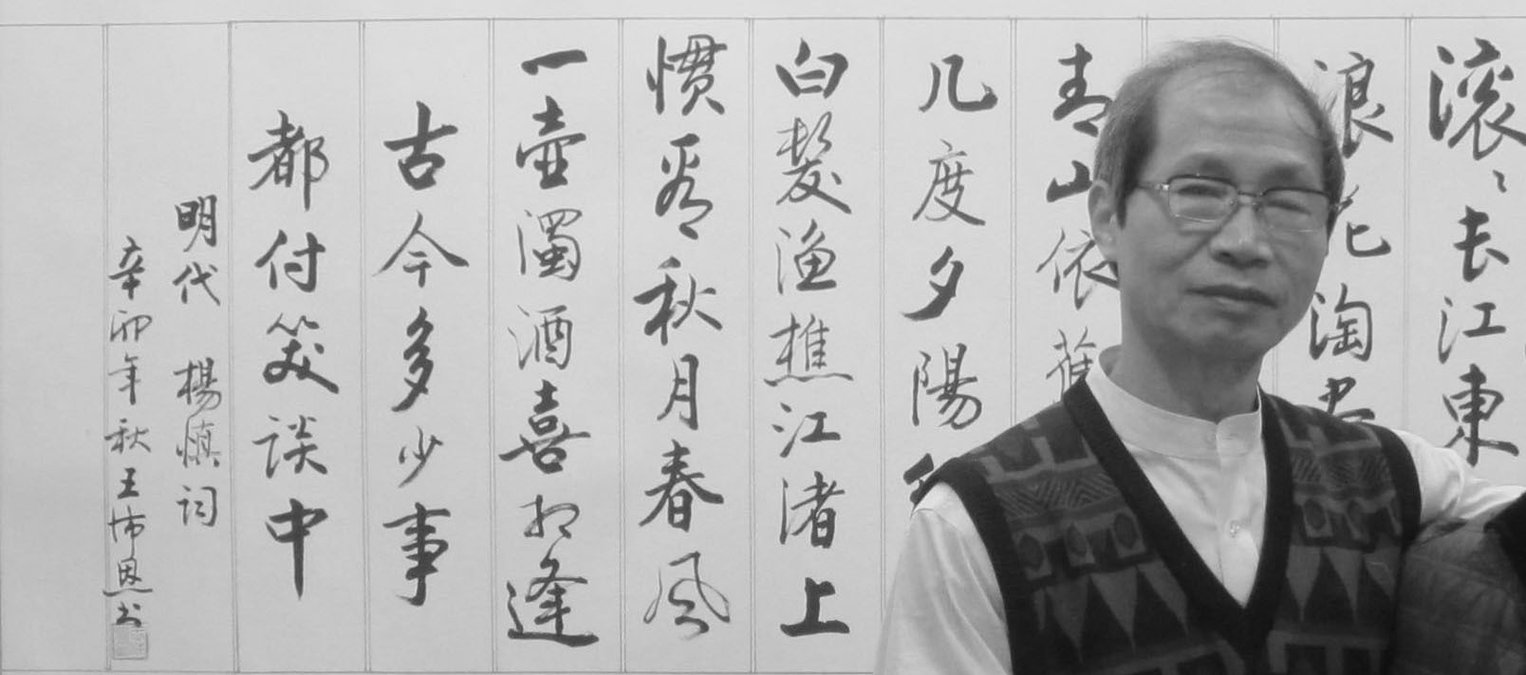 滚滚长江東
浪花淘尽
青山依舊
几度夕陽
白髮渔樵江渚上
惯看秋月春风
一壶濁酒喜相逢
古今多少事
都付笑谈中
明代 楊慎词
辛卯年秋王沛恩书